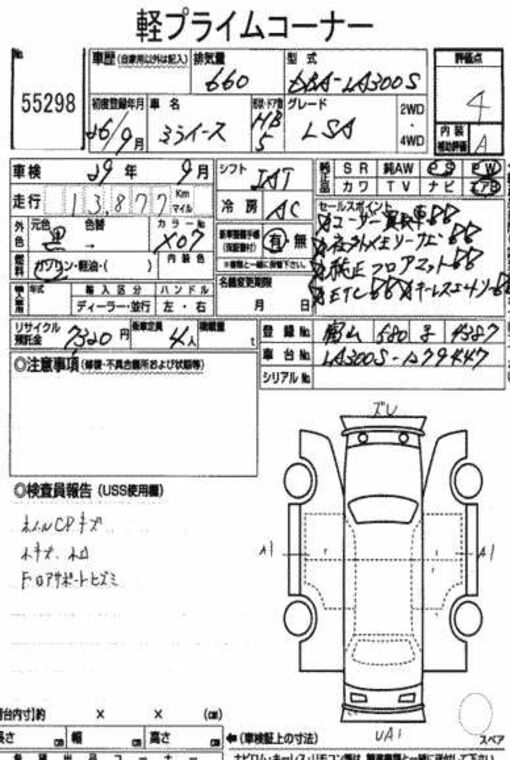 軽プライムコーナー
No.
55298
車歴 (自家用以外は記入)
排気量
660
型式
DBA-LA300S
評価点
4
内装
補助評価
A
初度登録年月
26/9月
車名
ミライース
形状・ドア数
HB
5
グレード
LSA
2WD
・
4WD
車検 29年 9月
シフト
IAT
純正品 SR 純AW PS PW
カワ TV ナビ エアB
走行 13,877 Km
マイル
冷房
AC
セールスポイント
ユーザー買取車
純正フロアマット
ETC キーレスエントリー
外色 元色 黒 色替 →
カラーNo. X07
内装色
新車整備手帳
(保証書付)
有・無
※書類と一緒に保管下さい。
燃料 ガソリン・軽油・( )
名義変更期限
月 日
輸入車用 年式 輸入区分 ハンドル
ディーラー・並行 左・右
リサイクル
預託金
7320円
乗車定員
4人
積載量
t
登録No. 富山 580 4387
車台No. LA300S-
シリアルNo.
◎注意事項 (修復・不具合箇所および状態等)
◎検査員報告 (USS使用欄)
ホイルCPキズ
Fロアサポートヒズミ
ズレ
A1
A1
UA1
スペア
荷台内寸]約 × × (㎝)
長さ ㎝ 幅 ㎝ 高さ ㎝
←(車検証上の寸法)